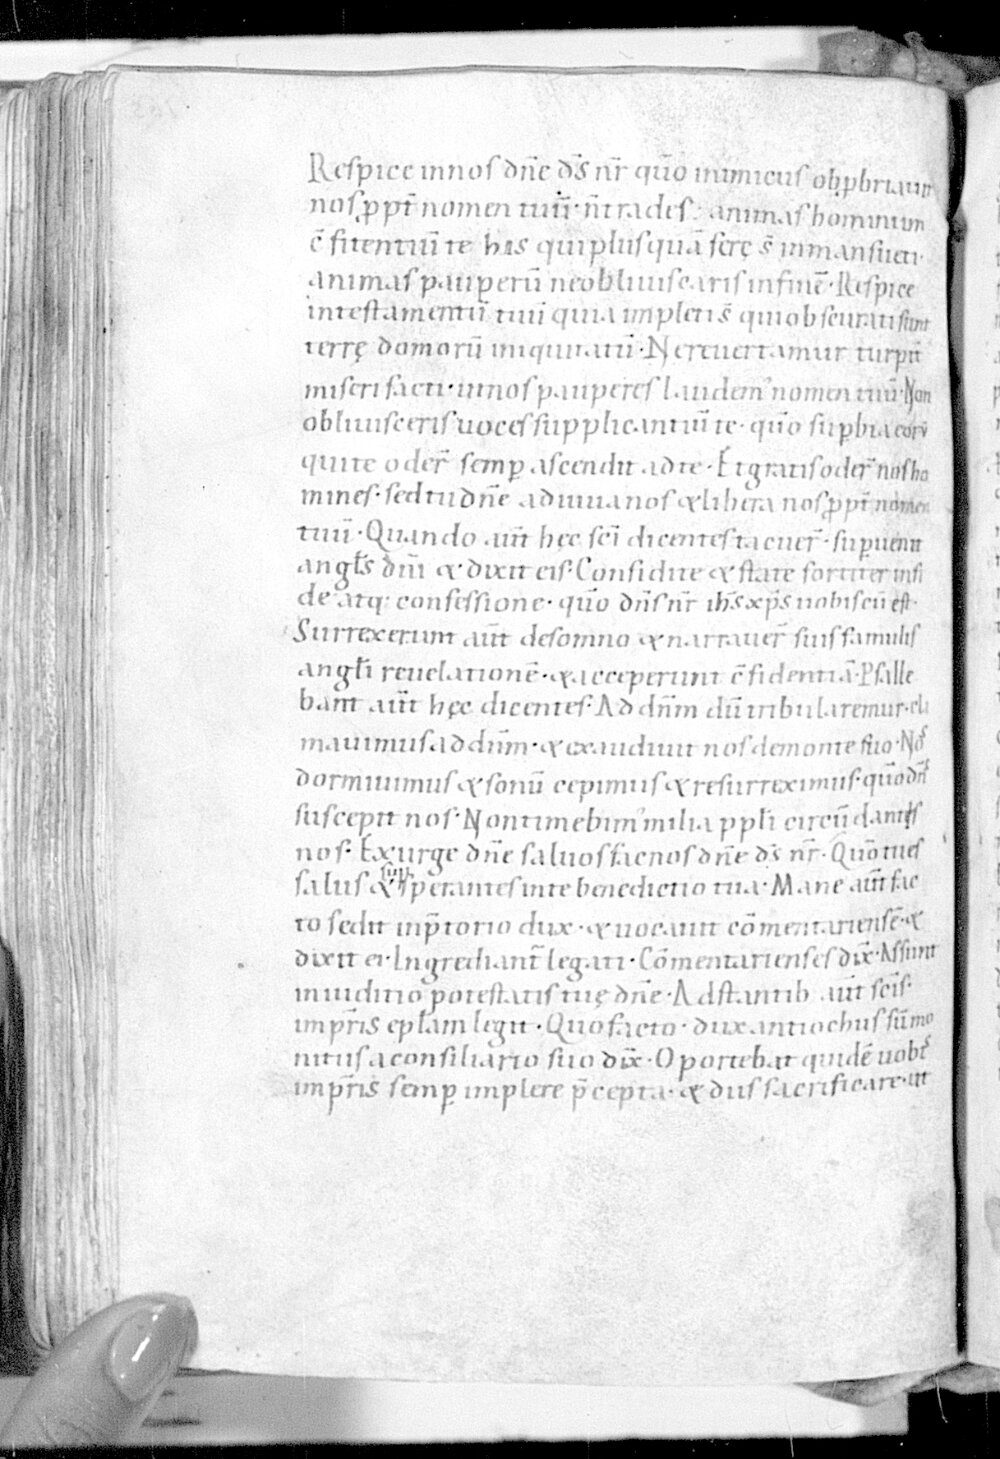 Respice innos dn̄e d̄s nr̄ quō inimicus obꝓbriauit
nos ꝓpt̄ nomen tuū· n̄ trades· animas hominum
c̄fitentiū te his qui plusquā ferę s̄ inmansueti·
animas pauperū ne obliuiscaris infinē· Respice
intestamentū tuū quia impleti s̄ qui obscurati sunt
terrę domorū iniquitatū· Ne reuertamur turpit̄
miseri facti· innos pauperes laudem᷒ nomen tuū· Non
obliuisceris uoces supplicantiū te· quō suꝑbia eorū
qui te oder̄ semꝑ ascendit ad te· Et gratis oder̄ nos ho
mines· sed tu dn̄e adiuua nos & libera nos ꝓpt̄ nomen
tuū· Quando aūt hęc sc̄i dicentes tacuer̄· suꝑuenit
angl̄s dn̄i & dixit eis· Considite & state fortiter infi
de atq; confessione· quō dn̄s nr̄ ih̄s xp̄s uobiscū est·
Surrexerunt aūt desomno & narrauer̄ suis famulis
angl̄i reuelationē· & acceperunt c̄fidentiā· Psalle
bant aūt hęc dicentes· Ad dn̄m dū tribularemur· cla
mauimus ad dn̄m· & exaudiuit nos demonte suo· Nos
dormiuimus & sonū cepimus & resurreximus· quō dn̄s
suscepit nos· Non timebim᷒ milia ppl̄i circūdantes
nos· Exurge dn̄e saluos fac nos dn̄e d̄s nr̄· Quō tu es
salus & sup sperantes inte benedictio tua· Mane aūt fac
to sedit inp̄torio dux· & uocauit cōmentariensē· &
dixit ei· Ingrediant̄ legati· Cōmentarienses dix̄· Assunt
iniuditio potestatis tuę dn̄e· Adstantib aūt sc̄is·
imp̄ris ep̄lam legit· Quo facto· dux antiochus sūmo
nitus aconsiliario suo dix̄· Oportebat quidē uobis
imp̄ris semꝑ implere p̄cepta· & diis sacrificare· ut